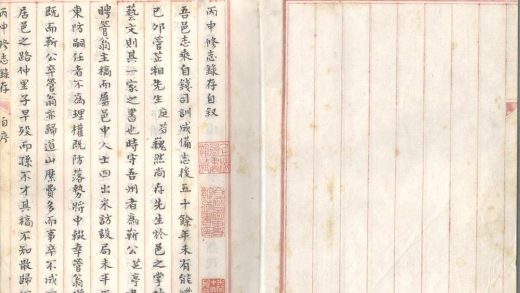 丙申修志錄存自叙
吾邑志乘自錢司訓成備志後五十餘年未有能
己卯管芷湘先生庭芬巍然尚存先生於邑之掌
藝文則其一家之書也時守吾州者為靳公芝亭
聘管翁主稿而屬邑中人士四出采訪設局未半
東防嗣任者不為理權既防落勢將中輟幸管翁
既而靳公卒管翁亦歸道山縻費多而事卒不成
居邑之路仲里子早歿而孫不才其稿不知散歸
丙申修志錄存 自序